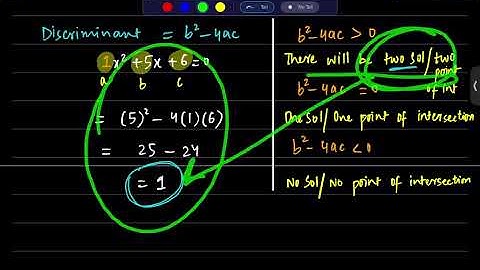 Discriminant = b²-4ac
1x² +5x +6=0
a b c
= (5)² - 4(1)(6)
= 25 - 24
= 1
b²-4ac > 0
There will be two sol/two point of int
b²-4ac = 0
One Sol/One point of intersection
b²-4ac < 0
No Sol/No point of intersection